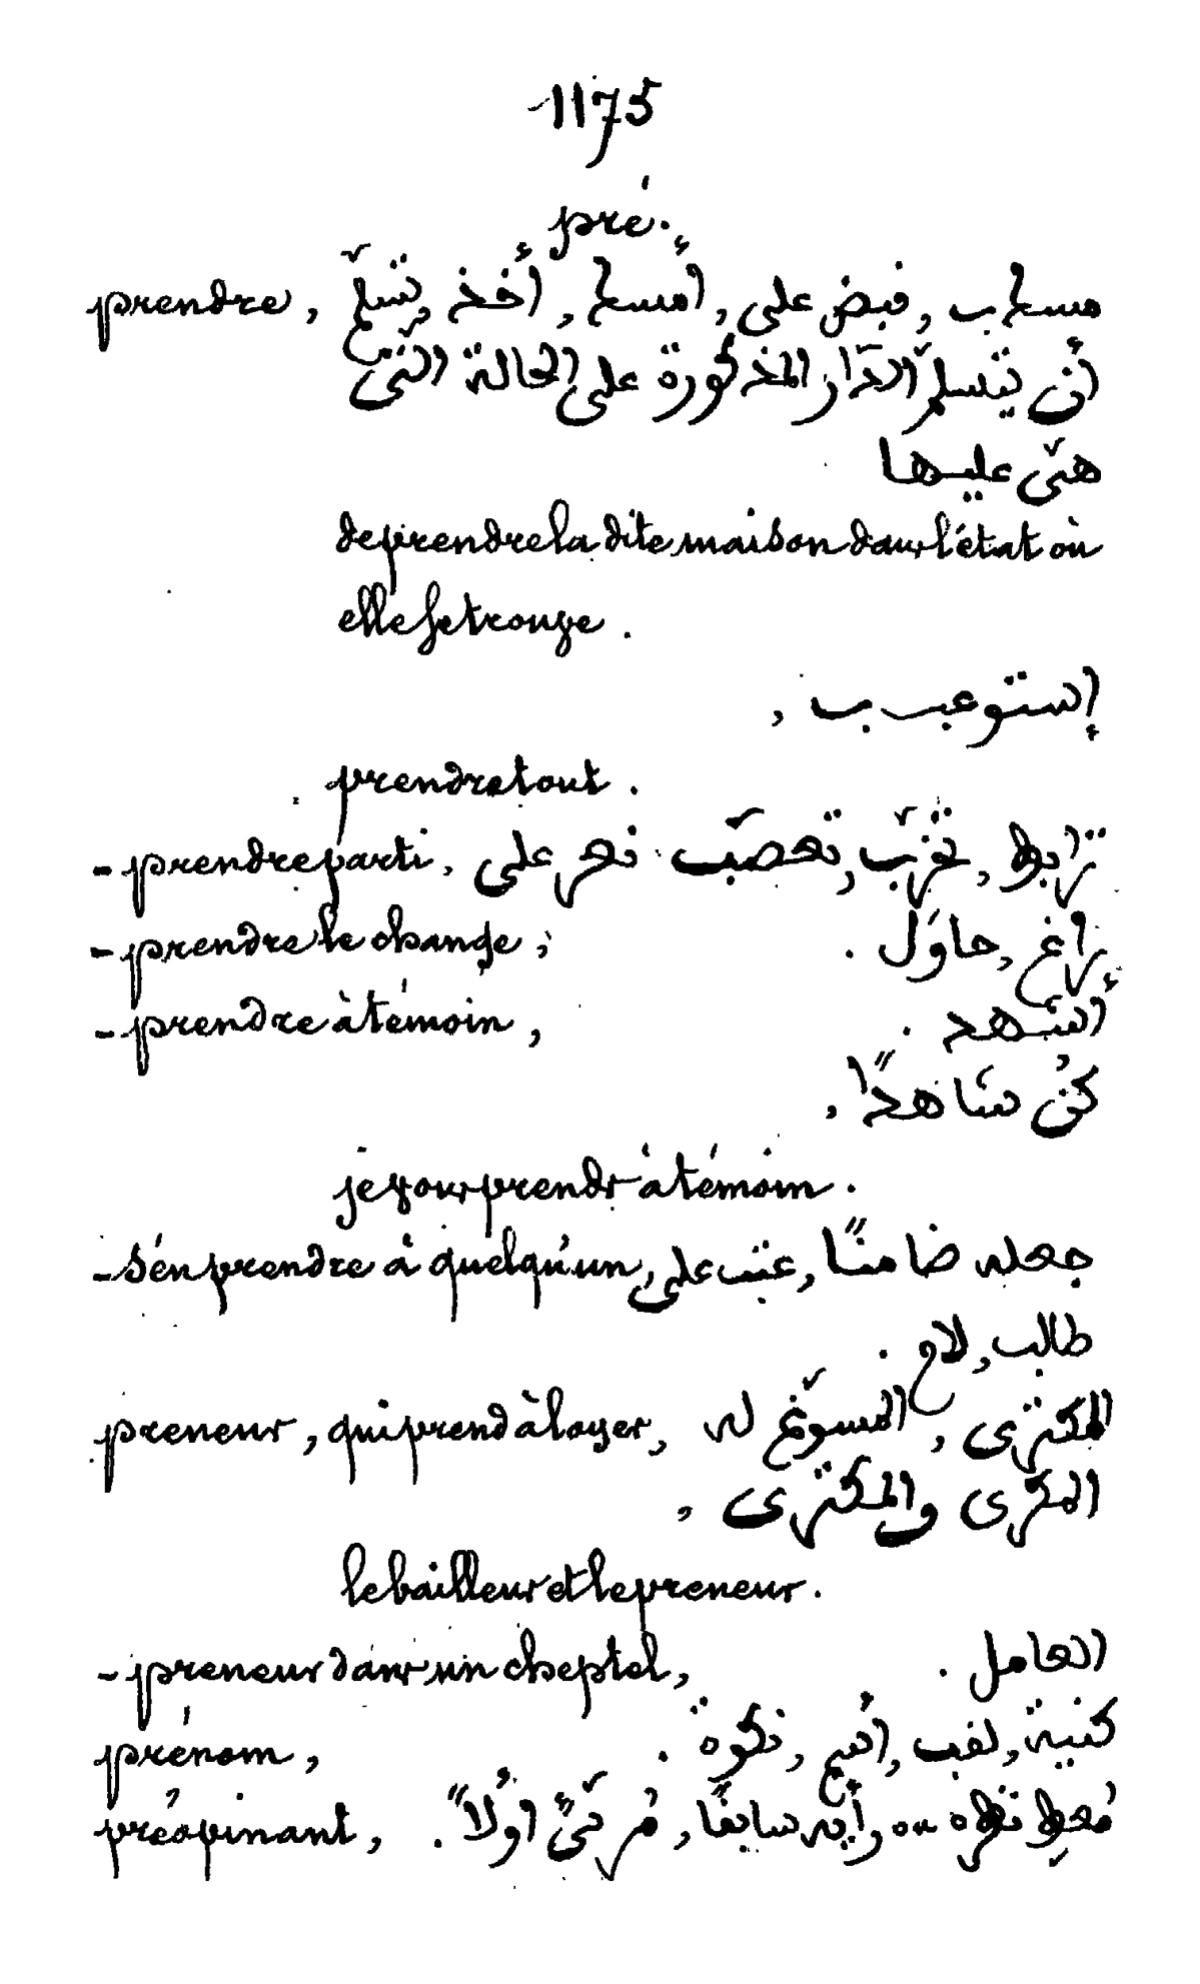 1175
pré.
prendre, مسك ب, قبض على, أمسك, أخذ, تسلّم
أن يتسلّم الدّار المذكورة على الحالة التّى
هىّ عليها
de prendre la dite maison dans l'état où
elle se trouve.
إستوعب ب,
prendre tout.
- prendre parti, ترابط, تحزّب, تعصّب نعر على
- prendre le change, راغ, حاوَل.
- prendre à témoin, أشهد.
كُن شاهدًا,
je vous prends à témoin.
- s'en prendre à quelqu'un, جعله ضامنًا, عتب على,
طالب, لام.
preneur, qui prend à loyer, المكترى, المسوّغ له
المكرى والمكترى,
le bailleur et le preneur.
- preneur dans un cheptel, العامل.
prénom, كنية, لقب, أسم, نكوة.
préopinant, مُعطِ نظره ou رأيه سابقًا, مُرتىًّ اوّلاً.